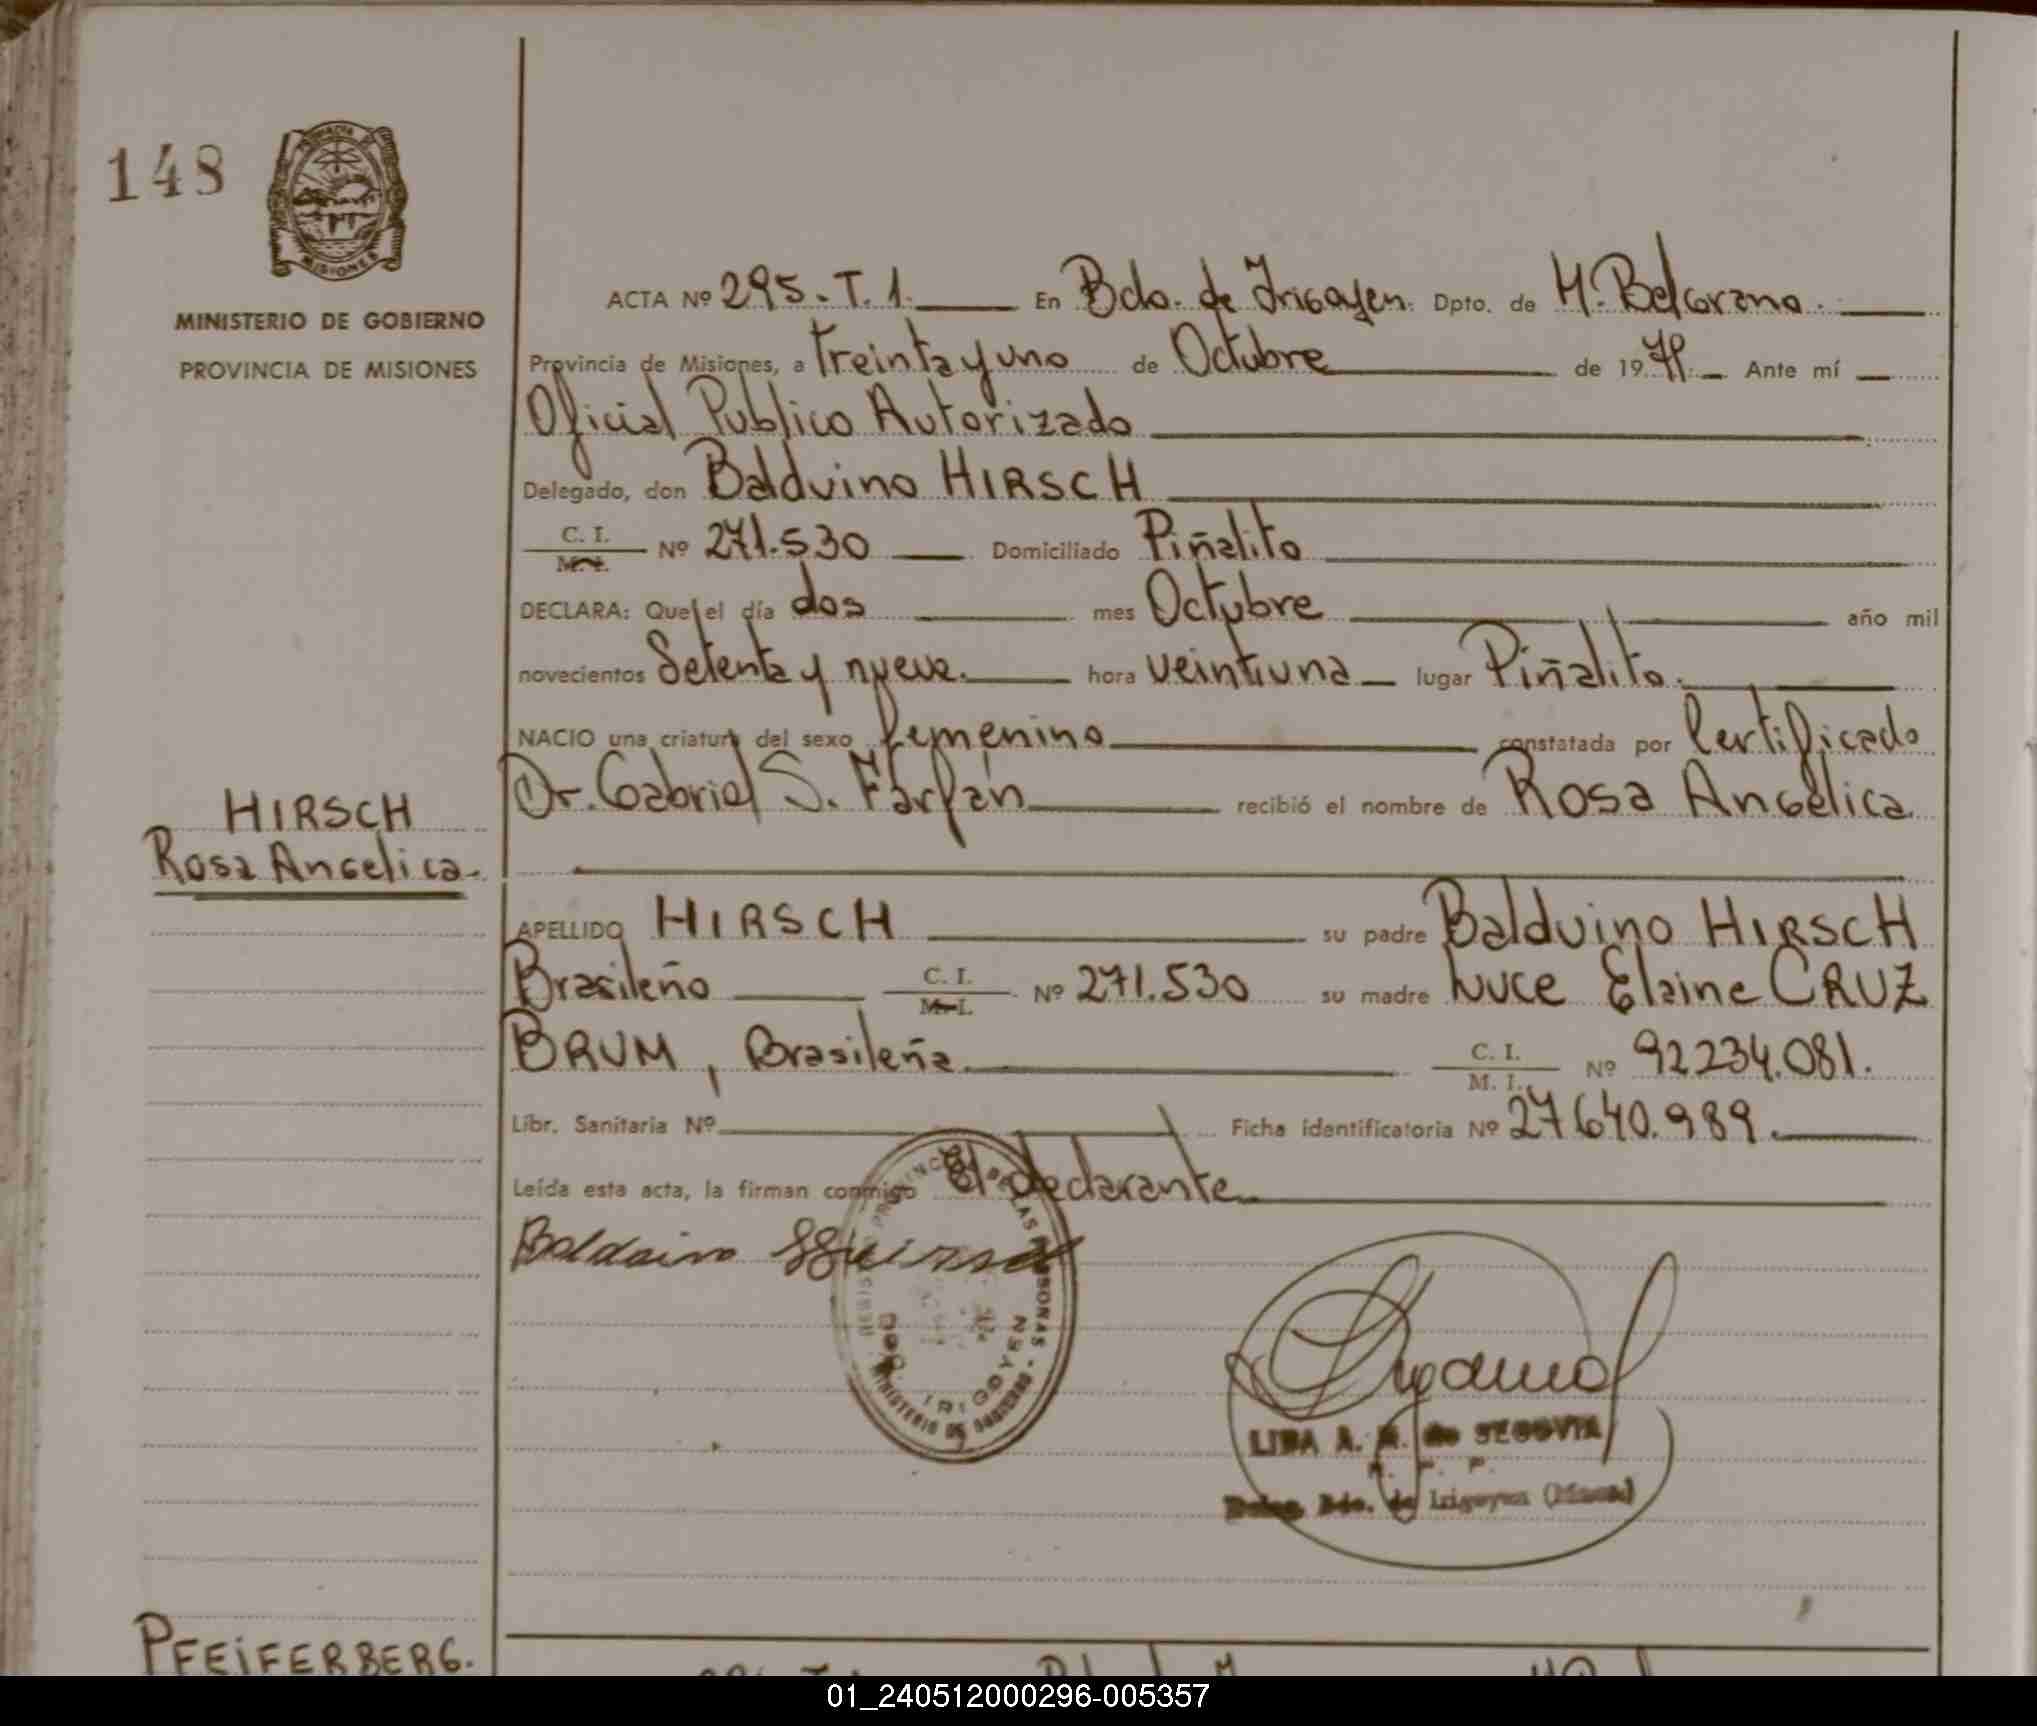 148
MISIONES
MINISTERIO DE GOBIERNO
PROVINCIA DE MISIONES
ACTA Nº 295.T.1. En Bdo. de Irigoyen. Dpto. de M. Belgrano.
Provincia de Misiones, a Treinta y uno de Octubre de 1979. Ante mí
Oficial Publico Autorizado
Delegado, don Balduino HIRSCH
C. I.
M. I.
Nº 271.530 Domiciliado Piñalito
DECLARA: Que el día dos mes Octubre año mil
novecientos Setenta y nueve. hora veintiuna lugar Piñalito.
NACIO una criatura del sexo femenino constatada por Certificado
Dr. Gabriel S. Farfán recibió el nombre de Rosa Angélica
HIRSCH
Rosa Angelica.
APELLIDO HIRSCH su padre Balduino HIRSCH
Brasileño C. I. Nº 271.530 su madre Luce Elaine CRUZ
M. I.
BRUM, Brasileña. C. I. Nº 92234.081.
M. I.
Libr. Sanitaria Nº Ficha identificatoria Nº 27640.989.
Leída esta acta, la firman conmigo El declarante
Balduino
BDO. IRIGOYEN
MINISTERIO DE GOBIERNO
LIBA A. de SEGOVIA
Deleg. Bdo. de Irigoyen (Mnes.)
PFEIFERBERG.
01_240512000296-005357